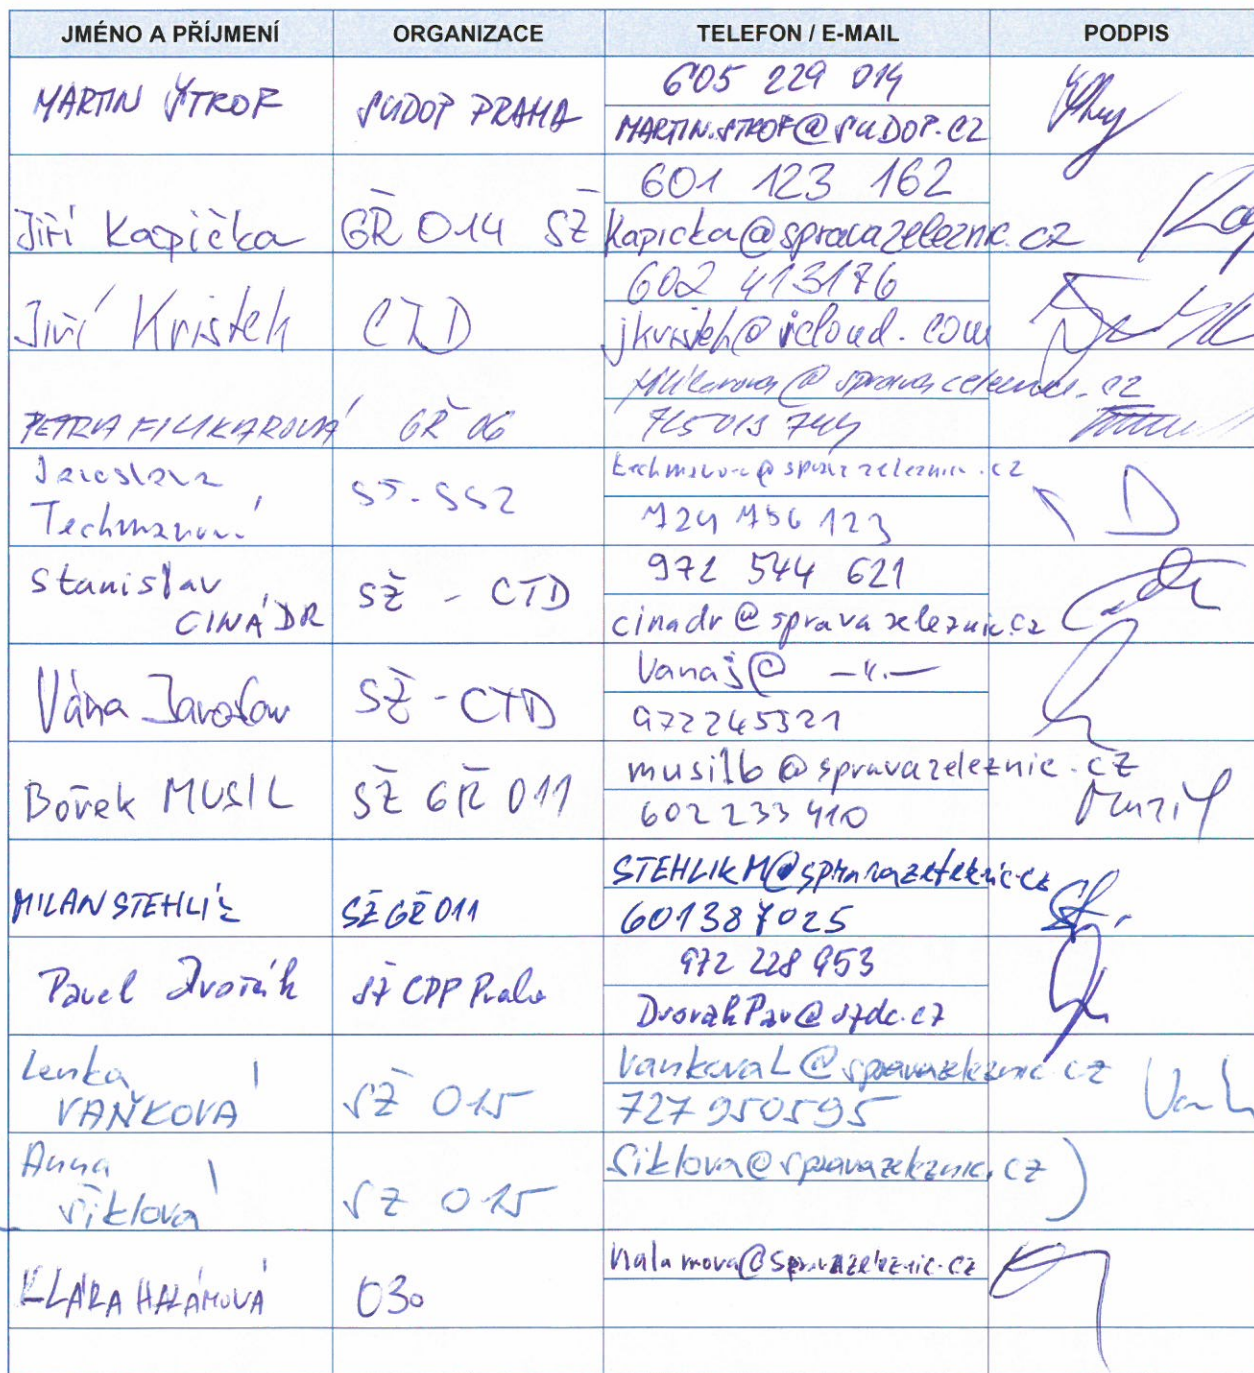 JMÉNO A PŘÍJMENÍ ORGANIZACE TELEFON / E-MAIL PODPIS
MARTIN ŠTROF SUDOP PRAHA 605 229 014
MARTIN.STROF@SUDOP.CZ
Jiří Kapička GŘ 014 SŽ 601 123 162
Kapicka@spravazeleznic.cz
Jiří Kristek CTD 602 413176
jkristek@icloud.com
PETRA FILIKAROVÁ GŘ 06
Jaroslava
Techmanová
724 756 123
Stanislav
CINÁDR SŽ - CTD 972 544 621
cinadr@spravazeleznic.cz
Váňa Jaroslav SŽ - CTD Vanaj@ —〃—
972245321
Bořek MUSIL SŽ GŘ 011 musilb@spravazeleznic.cz
602 233 410
MILAN STEHLÍK SŽ GŘ 011 STEHLIKM@spravazeleznic.cz
601387025
Pavel Dvořák SŽ CDP Praha 972 228 953
DvorakPav@szdc.cz
Lenka
VAŇKOVÁ SŽ 015 VankovaL@spravazeleznic.cz
727 950595
Anna
Šiklová SŽ 015 Siklova@spravazeleznic.cz
KLÁRA HALÁMOVÁ 030 Halamova@spravazeleznic.cz